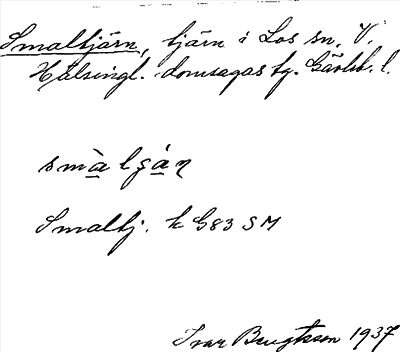 Smaltjärn, tjärn i Los sn. V.
Hälsingl. domsagas tg. Gävleb. l.
smàlgán
Smaltj. k G83 SM
Ivar Bengtsson 1937